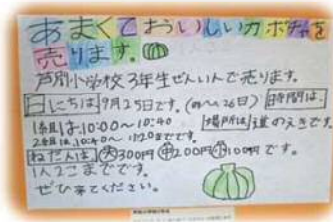 あまくておいしいカボチャを
売ります。
芦別小学校3年生ぜんいんで売ります。
日にちは9月25日です。(25〜26日) 時間は、
1回目は、10:00〜10:40 場所は道のえきです。
2回目は、10:40〜11:20までです。
ねだんは、大300円 中200円 小100円です。
1人2こまでです。
ぜひ来てください。